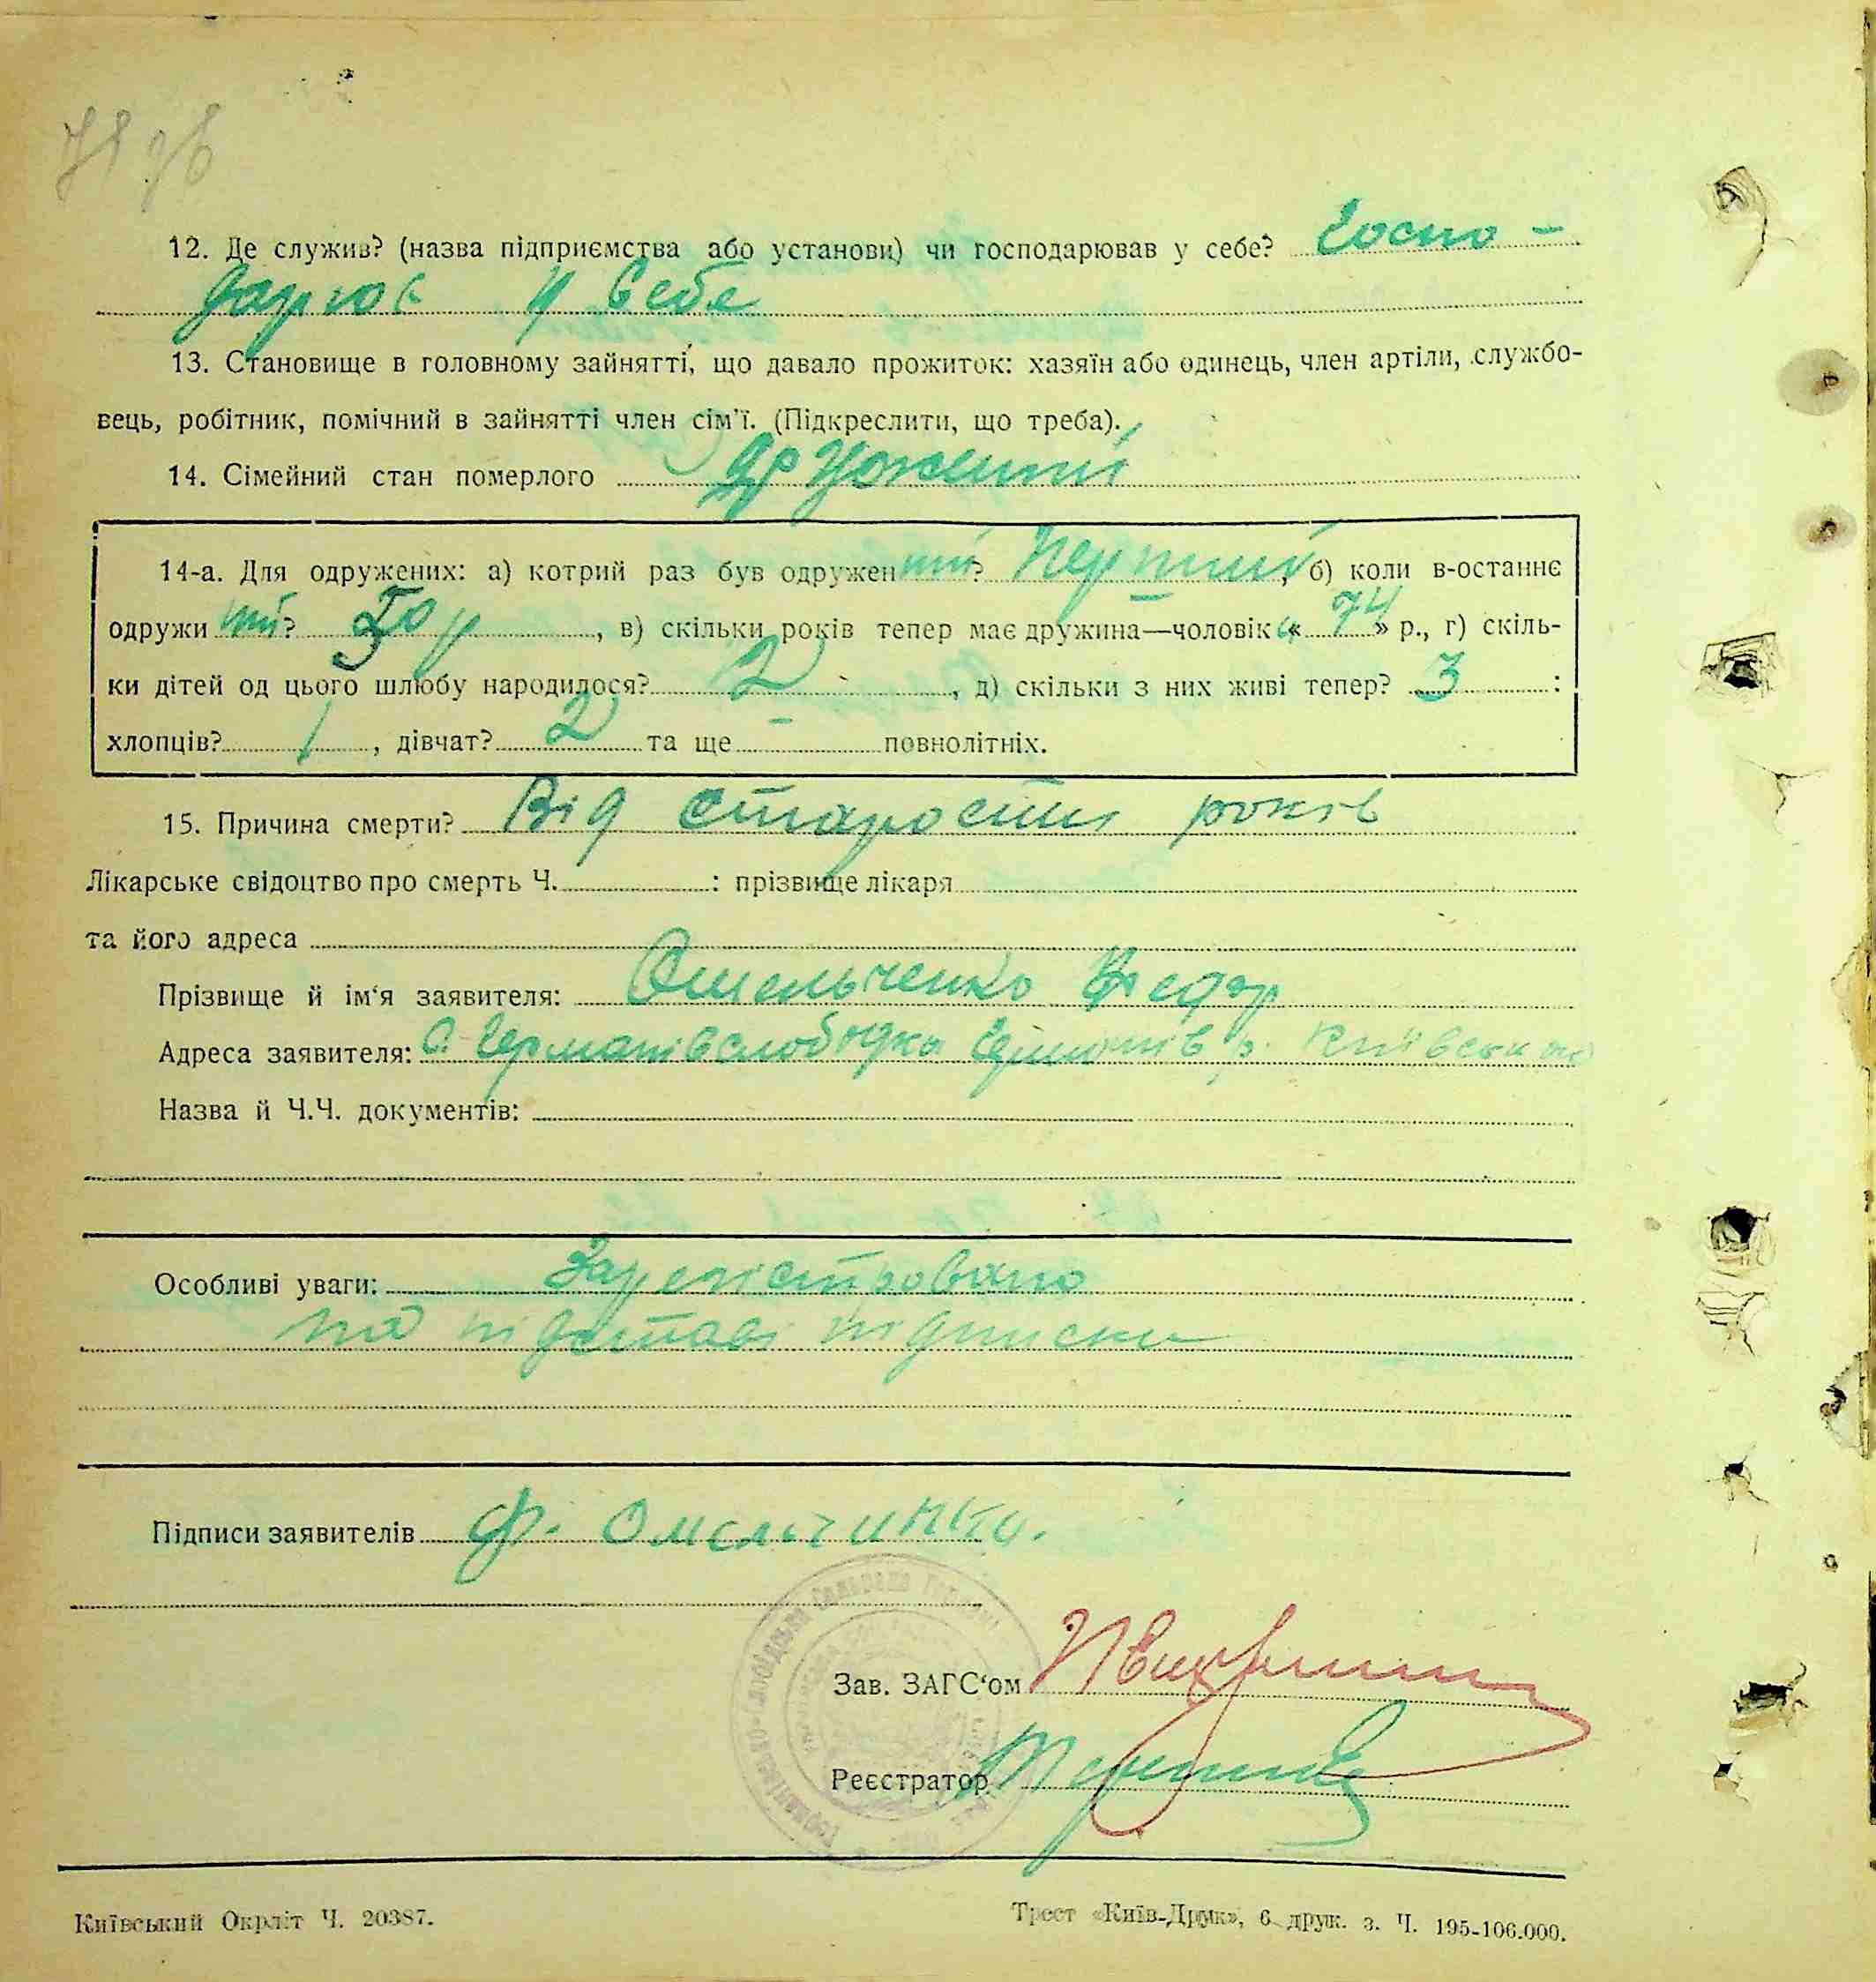 12. Де служив? (назва підприємства або установи) чи господарював у себе? Госпо-
дарюв у себе
13. Становище в головному зайнятті, що давало прожиток: хазяїн або одинець, член артіли, службо-
вець, робітник, помічний в зайнятті член сім'ї. (Підкреслити, що треба).
14. Сімейний стан померлого Дружитий
14-а. Для одружених: а) котрий раз був одружений? Перший, б) коли в-останнє
одружи ? 50 р, в) скільки років тепер має дружина—чоловік « 74 » р., г) скіль-
ки дітей од цього шлюбу народилося? 2, д) скільки з них живі тепер? 3 :
хлопців? 1, дівчат? 2 та ще - повнолітніх.
15. Причина смерти? Від старости років
Лікарське свідоцтво про смерть Ч. : прізвище лікаря
та його адреса
Прізвище й ім'я заявителя: Омельченко Федор
Адреса заявителя: С. Германівслобідка
Назва й Ч.Ч. документів:
Особливі уваги: Зареєстровано
на підставі підписки
Підписи заявителів Ф. Омельчинко.
Зав. ЗАГС'ом
Реєстратор
Київський Окрліт Ч. 20387.
Трест «Київ-Друк», 6 друк. з. Ч. 195-106.000.